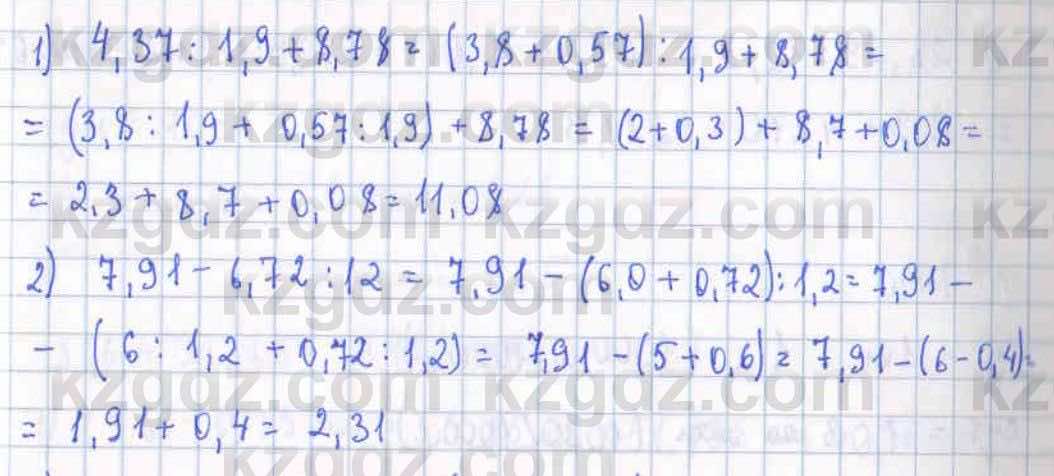 1) 4,37 : 1,9 + 8,78 = (3,8 + 0,57) : 1,9 + 8,78 =
= (3,8 : 1,9 + 0,57 : 1,9) + 8,78 = (2 + 0,3) + 8,7 + 0,08 =
= 2,3 + 8,7 + 0,08 = 11,08
2) 7,91 - 6,72 : 12 = 7,91 - (6,0 + 0,72) : 1,2 = 7,91 -
- (6 : 1,2 + 0,72 : 1,2) = 7,91 - (5 + 0,6) = 7,91 - (6 - 0,4) =
= 1,91 + 0,4 = 2,31
kzgdz.com